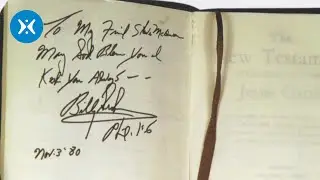 To My Friend Steve McQueen
May God Bless You and
Keep You Always --
Billy Graham
Phil. 1:6
Nov. 3 '80
The
New Testament
Jesus Christ